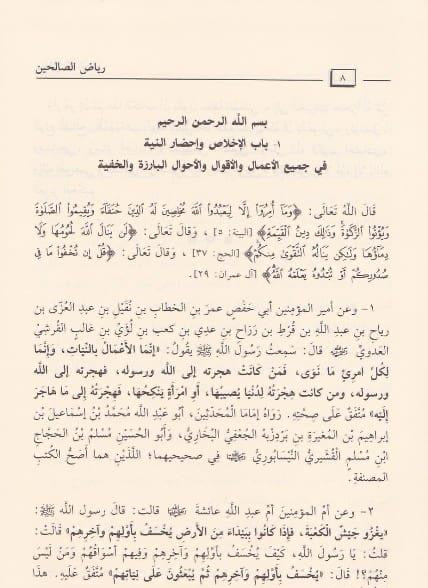 ٨
رياض الصالحين
بسم الله الرحمن الرحيم
١- باب الإخلاص وإحضار النية
في جميع الأعمال والأقوال والأحوال البارزة والخفية
قَالَ اللَّهُ تَعَالَى: ﴿وَمَآ أُمِرُوٓاْ إِلَّا لِيَعْبُدُواْ ٱللَّهَ مُخْلِصِينَ لَهُ ٱلدِّينَ حُنَفَآءَ وَيُقِيمُواْ ٱلصَّلَوٰةَ
وَيُؤْتُواْ ٱلزَّكَوٰةَ وَذَٰلِكَ دِينُ ٱلْقَيِّمَةِ﴾ [البينة: ٥]، وقَالَ تَعَالَى: ﴿لَن يَنَالَ ٱللَّهَ لُحُومُهَا وَلَا
دِمَآؤُهَا وَلَٰكِن يَنَالُهُ ٱلتَّقْوَىٰ مِنكُمْ﴾ [الحج: ٣٧]، وقَالَ تَعَالَى: ﴿قُلْ إِن تُخْفُواْ مَا فِى
صُدُورِكُمْ أَوْ تُبْدُوهُ يَعْلَمْهُ ٱللَّهُ﴾ [آل عمران: ٢٩].
١- وعن أمير المؤمنين أبي حَفْصٍ عمرَ بنِ الخطاب بن نُفَيْل بنِ عبدِ العُزّى بن
رياح بنِ عبدِ اللَّهِ بن قُرْطِ بن رَزَاحِ بن عدِي بنِ كعب بن لُؤَيِّ بن غالبٍ القُرشِيِّ
العدويِّ ﷺ قالَ: سَمِعتُ رَسُولَ اللَّهِ ﷺ يقُولُ: «إنَّما الأعْمَالُ بالنِّيَّات، وَإنَّمَا
لِكُلِّ امرِئٍ مَا نَوَى، فَمَنْ كَانَتْ هجرته إلى الله ورسوله، فهجرته إلى الله
ورسوله، ومن كانت هِجْرَتُهُ لِدُنْيَا يُصيبُها، أو امْرَأَةٍ يَنْكِحُهَا، فَهِجْرَتُهُ إلى مَا هَاجَرَ
إلَيْهِ» مُتَّفَقٌ عَلَى صِحَّتِهِ. رَوَاهُ إمَامَا المُحَدِّثِينَ، أبُو عَبْدِ اللَّه مُحَمَّدُ بْنُ إسْمَاعِيلَ بْنِ
إبراهِيمَ بْنِ المُغيرَةِ بنِ بَرْدِزْبهْ الجُعْفِيُّ البُخَارِيُّ، وَأبُو الحُسَيْنِ مُسْلمُ بْنُ الحَجَّاجِ
ابْنِ مُسْلمٍ القُشَيْرِيُّ النَّيْسَابُورِيُّ في صحيحيهما؛ اللَّذَيْنِ هما أَصَحُّ الكُتبِ
المصنفةِ.
٢- وعن أم المؤمنين أمِّ عبدِ اللَّهِ عائشةَ قالت: قالَ رسولُ اللَّه ﷺ:
«يغْزُو جَيْشٌ الْكَعْبَةَ، فإِذَا كانُوا ببَيْداءَ مِنَ الأَرْضِ يُخْسَفُ بأوَّلِهِمْ وآخرِهِمْ» قَالَتْ:
قلتُ: يَا رَسُولَ اللَّهِ، كَيْفَ يُخْسَفُ بأَوَّلِهِمْ وَآخِرِهِمْ وَفِيهِمْ أسْوَاقُهُمْ وَمَنْ لَيْسَ
مِنْهُمْ؟! قَالَ: «يُخْسَفُ بأوَّلِهِمْ وَآخِرِهِمْ ثُمَّ يُبْعَثُونَ عَلَى نِيَّاتِهِمْ» مُتَّفَقٌ عَلَيهِ. هذَا